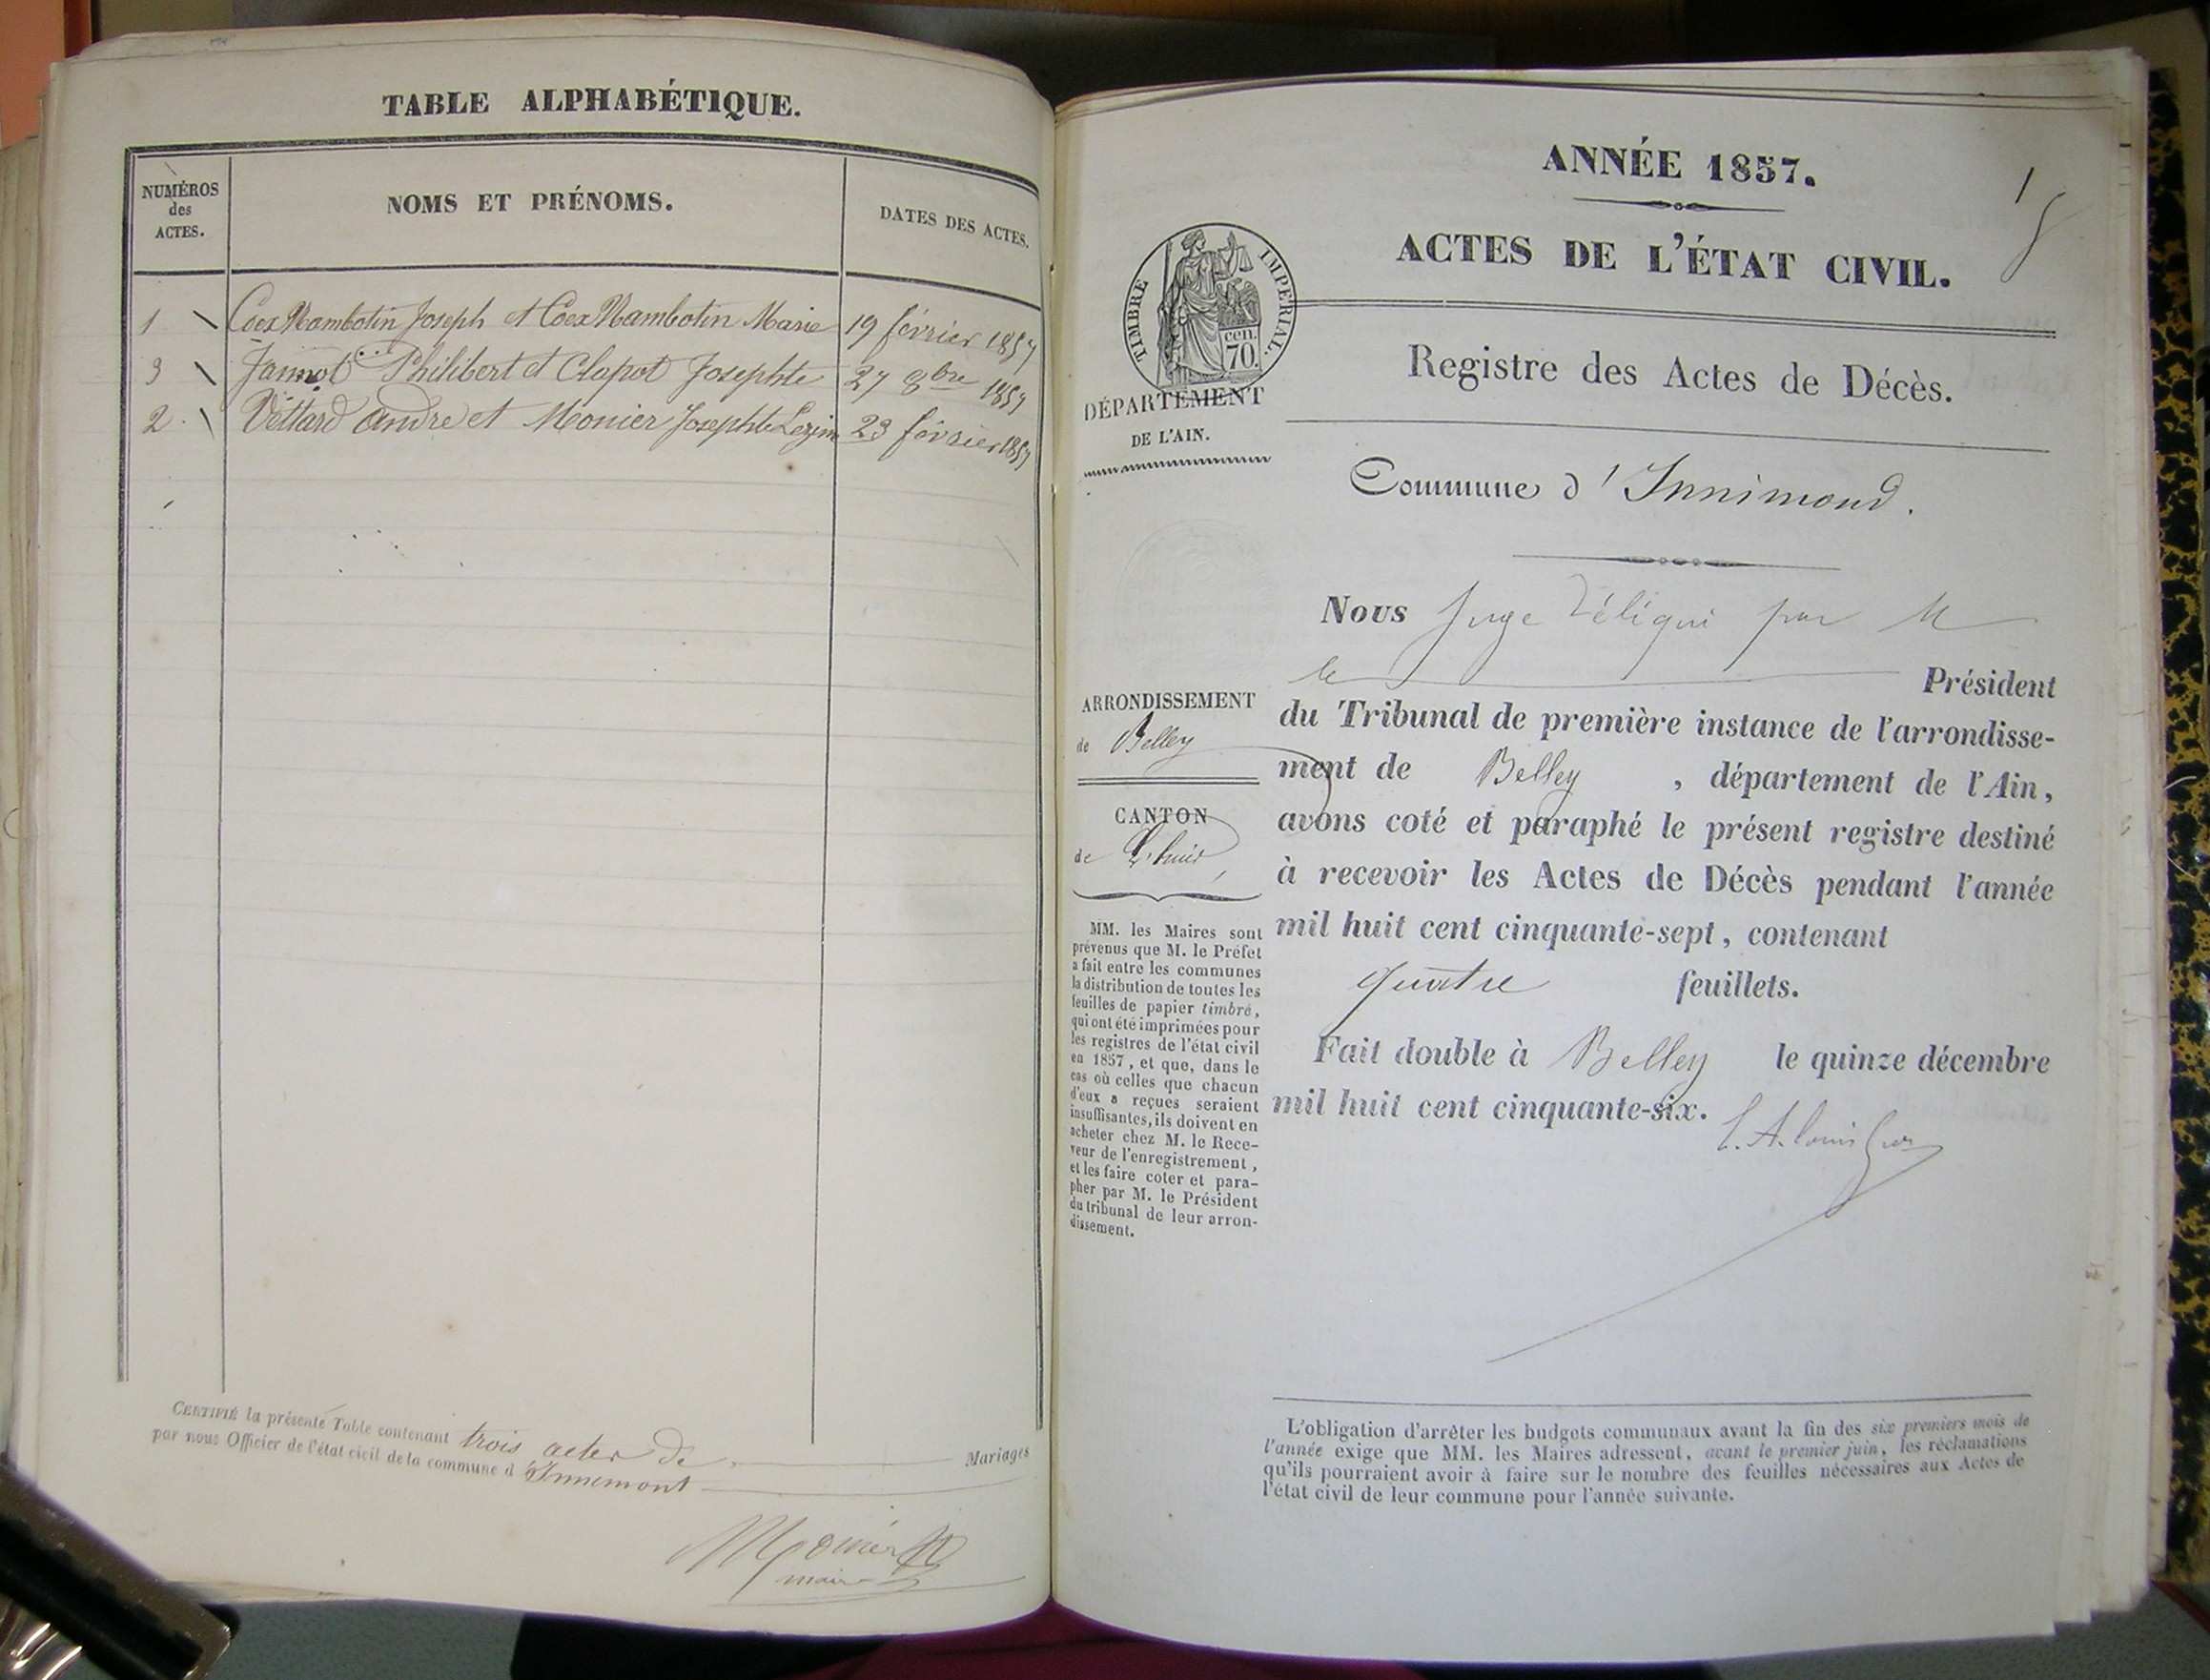 TABLE ALPHABÉTIQUE.
NUMÉROS
des
ACTES.
NOMS ET PRÉNOMS.
DATES DES ACTES.
1 Coex Mambotin Joseph et Coex Mambotin Marie 19 février 1857
3 Jannot Philibert et Clapot Josephte 27 8bre 1857
2 Vettard andre et Monier Josephte 23 février 1857
CERTIFIÉ la présente Table contenant trois actes de Mariages
par nous Officier de l'état civil de la commune d'Innimont
Monier
maire
ANNÉE 1857.
1
ACTES DE L'ÉTAT CIVIL.
TIMBRE IMPÉRIAL.
cen.
70.
DÉPARTEMENT
DE L'AIN.
Registre des Actes de Décès.
Commune d'Innimond.
ARRONDISSEMENT
de Belley
CANTON
de Lhuis
MM. les Maires sont
prévenus que M. le Préfet
a fait entre les communes
la distribution de toutes les
feuilles de papier timbré,
qui ont été imprimées pour
les registres de l'état civil
en 1857, et que, dans le
cas où celles que chacun
d'eux a reçues seraient
insuffisantes, ils doivent en
acheter chez M. le Rece-
veur de l'enregistrement,
et les faire coter et para-
pher par M. le Président
du tribunal de leur arron-
dissement.
Nous Juge délégué par M
le Président
du Tribunal de première instance de l'arrondisse-
ment de Belley, département de l'Ain,
avons coté et paraphé le présent registre destiné
à recevoir les Actes de Décès pendant l'année
mil huit cent cinquante-sept, contenant
quatre feuillets.
Fait double à Belley le quinze décembre
mil huit cent cinquante-six.
L'obligation d'arrêter les budgets communaux avant la fin des six premiers mois de
l'année exige que MM. les Maires adressent, avant le premier juin, les réclamations
qu'ils pourraient avoir à faire sur le nombre des feuilles nécessaires aux Actes de
l'état civil de leur commune pour l'année suivante.